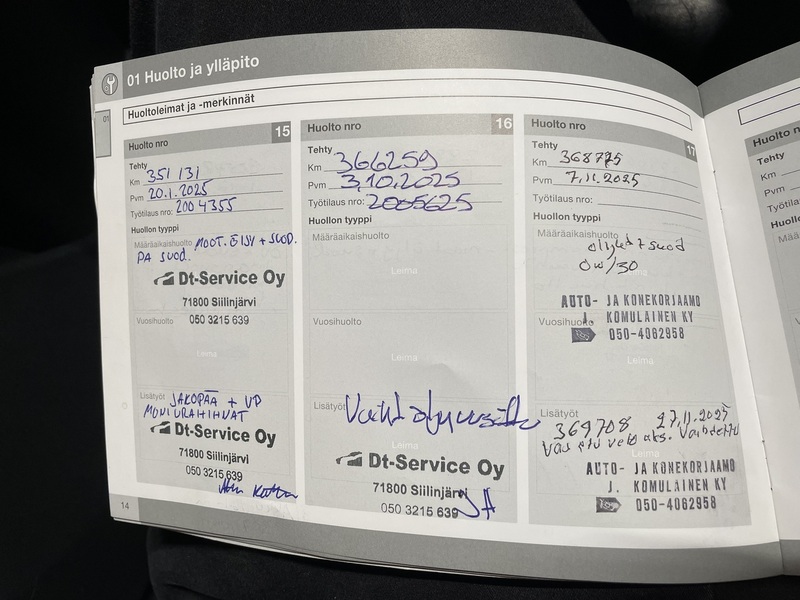 01 Huolto ja ylläpito
Huoltoleimat ja -merkinnät
01
Huolto nro 15
Tehty
Km 351 131
Pvm 20.1.2025
Työtilaus nr: 200 4355
Huollon tyyppi
Määräaikaishuolto MOOT. ÖLJY + SUOD.
PA SUOD.
Dt-Service Oy
71800 Siilinjärvi
Vuosihuolto 050 3215 639
Leima
Lisätyöt JAKOPÄÄ + VP
MONIURAHIHNAT
Dt-Service Oy
71800 Siilinjärvi
050 3215 639
14
Huolto nro 16
Tehty
Km 366259
Pvm 3.10.2025
Työtilaus nro: 2005625
Huollon tyyppi
Määräaikaishuolto
Leima
Vuosihuolto
Leima
Lisätyöt
Leima
Dt-Service Oy
71800 Siilinjärvi
050 3215 639
Huolto nro 17
Tehty
Km 368775
Pvm 7.11.2025
Työtilaus nro:
Huollon tyyppi
Määräaikaishuolto
öljyt + suod
0W/30
Leima
AUTO- JA KONEKORJAAMO
Vuosihuolto J. KOMULAINEN KY
050-4062958
Leima
Lisätyöt 27.11.2025
369708
Vas etu veto aks. Vaihdettu
Leima
AUTO- JA KONEKORJAAMO
J. KOMULAINEN KY
050-4062958
Huolto n
Tehty
Km
Pvm
Työtila
Huollo
Määrä